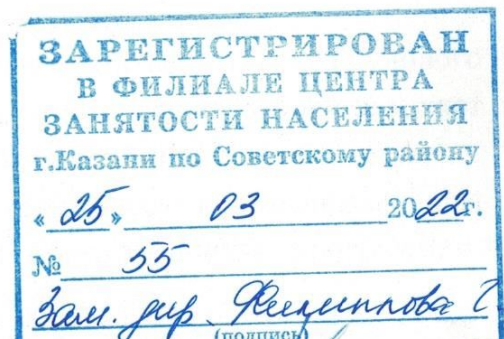 ЗАРЕГИСТРИРОВАН
В ФИЛИАЛЕ ЦЕНТРА
ЗАНЯТОСТИ НАСЕЛЕНИЯ
г.Казани по Советскому району
« 25 » 03 2022г.
№ 55
Зам. дир. Филиппова
(подпись)